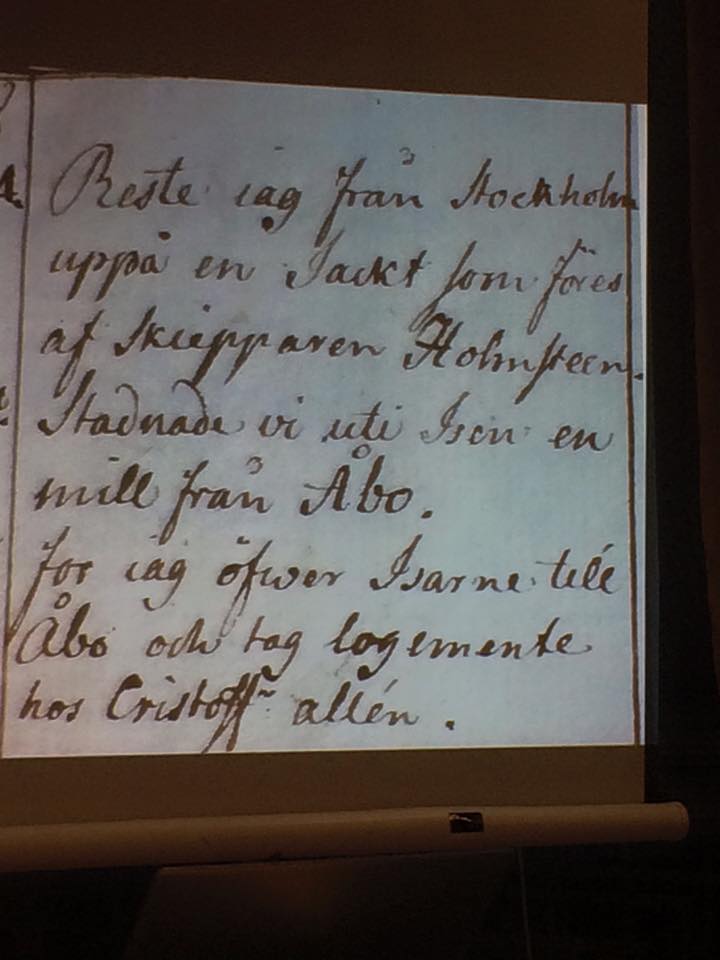 Reste iag från Stockholm
uppå en Jackt som föres
af Skiepparen Holmsteen.
Stadnade vi uti Isen en
mill från Åbo.
for iag öfwer Isarne till
Åbo och tog logemente
hos Cristoff~ allén.